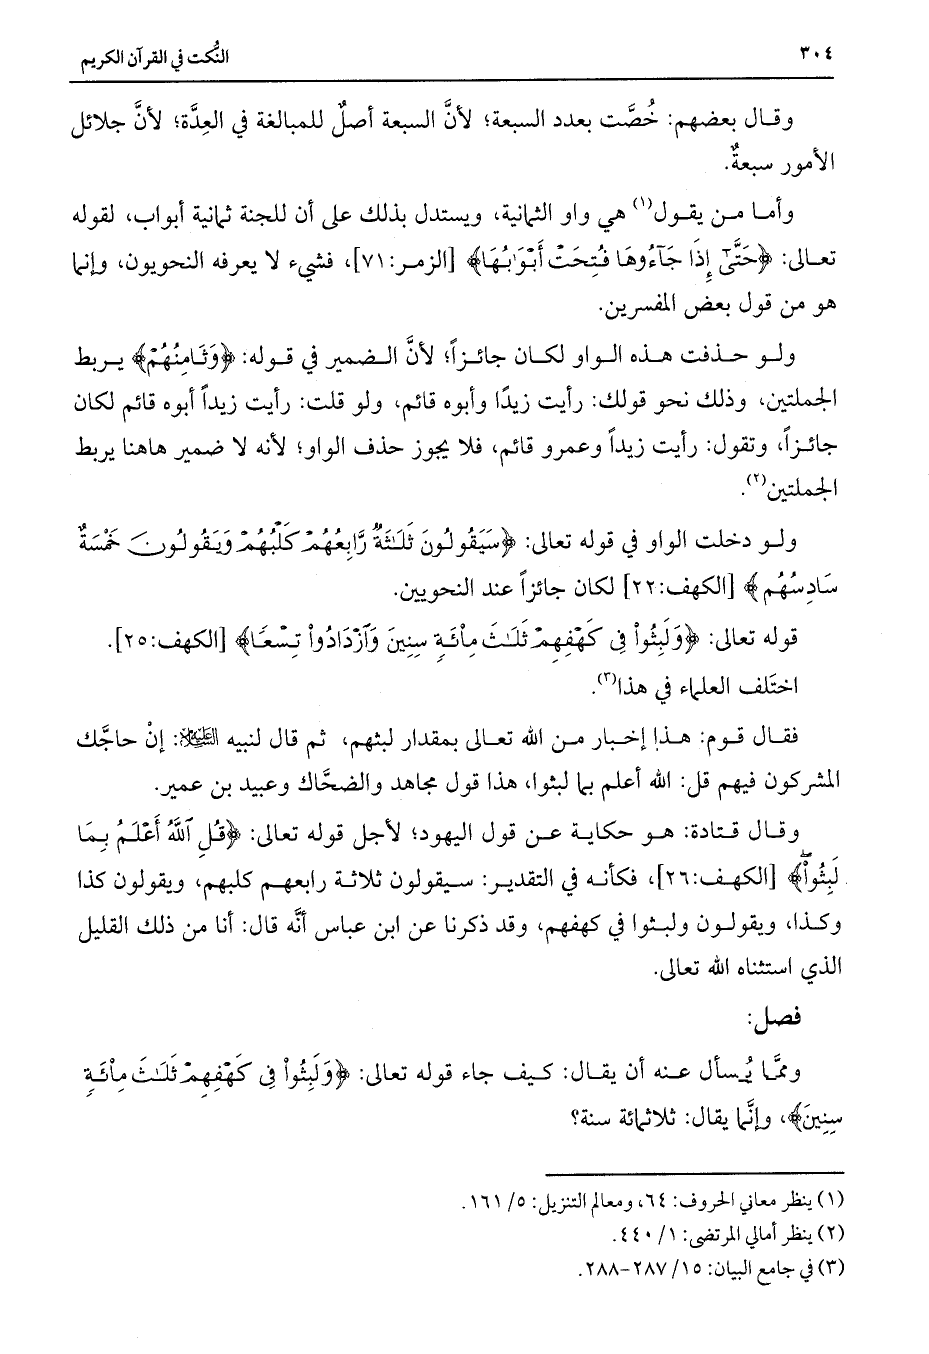 ٣٠٤ النُّكت في القرآن الكريم
وقال بعضهم: خُصَّت بعدد السبعة؛ لأنَّ السبعة أصلٌ للمبالغة في العِدَّة؛ لأنَّ جلائل
الأمور سبعةٌ.
وأما من يقول(١) هي واو الثمانية، ويستدل بذلك على أن للجنة ثمانية أبواب، لقوله
تعالى: ﴿حَتَّىٰٓ إِذَا جَآءُوهَا فُتِحَتۡ أَبۡوَٰبُهَا﴾ [الزمر:٧١]، فشيء لا يعرفه النحويون، وإنما
هو من قول بعض المفسرين.
ولو حذفت هذه الواو لكان جائزاً؛ لأنَّ الضمير في قوله: ﴿وَثَامِنُهُمۡ﴾ يربط
الجملتين، وذلك نحو قولك: رأيت زيدًا وأبوه قائم، ولو قلت: رأيت زيداً أبوه قائم لكان
جائزاً، وتقول: رأيت زيداً وعمرو قائم، فلا يجوز حذف الواو؛ لأنه لا ضمير هاهنا يربط
الجملتين(٢).
ولو دخلت الواو في قوله تعالى: ﴿سَيَقُولُونَ ثَلَٰثَةٞ رَّابِعُهُمۡ كَلۡبُهُمۡ وَيَقُولُونَ خَمۡسَةٞ
سَادِسُهُم﴾ [الكهف:٢٢] لكان جائزاً عند النحويين.
قوله تعالى: ﴿وَلَبِثُواْ فِي كَهۡفِهِمۡ ثَلَٰثَ مِاْئَةٖ سِنِينَ وَٱزۡدَادُواْ تِسۡعٗا﴾ [الكهف:٢٥].
اختَلف العلماء في هذا(٣).
فقال قوم: هذا إخبار من الله تعالى بمقدار لبثهم، ثم قال لنبيه عليه السلام: إنْ حاجَّك
المشركون فيهم قل: الله أعلم بما لبثوا، هذا قول مجاهد والضحَّاك وعبيد بن عمير.
وقال قتادة: هو حكاية عن قول اليهود؛ لأجل قوله تعالى: ﴿قُلِ ٱللَّهُ أَعۡلَمُ بِمَا
لَبِثُواْۖ﴾ [الكهف:٢٦]، فكأنه في التقدير: سيقولون ثلاثة رابعهم كلبهم، ويقولون كذا
وكذا، ويقولون ولبثوا في كهفهم، وقد ذكرنا عن ابن عباس أنَّه قال: أنا من ذلك القليل
الذي استثناه الله تعالى.
فصل:
وممَّا يُسأل عنه أن يقال: كيف جاء قوله تعالى: ﴿وَلَبِثُواْ فِي كَهۡفِهِمۡ ثَلَٰثَ مِاْئَةٖ
سِنِينَ﴾، وإنَّما يقال: ثلاثمائة سنة؟
(١) ينظر معاني الحروف: ٦٤، ومعالم التنزيل: ٥/ ١٦١.
(٢) ينظر أمالي المرتضى: ١/ ٤٤٠.
(٣) في جامع البيان: ١٥/ ٢٨٧-٢٨٨.